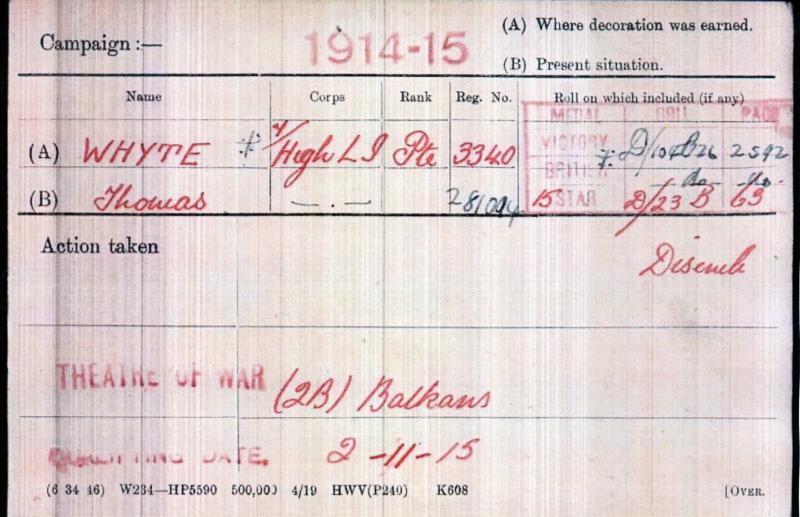 Campaign :— 1914-15 (A) Where decoration was earned.
(B) Present situation.
Name Corps Rank Reg. No. Roll on which included (if any)
MEDAL ROLL PAGE
(A) WHYTE High L I Pte 3340 VICTORY D/104B26 2592
BRITISH do do
(B) Thomas — . — 281094 15 STAR D/23 B 63
Action taken
Disemb
THEATRE OF WAR (2B) Balkans
QUALIFYING DATE. 2-11-15
(6 34 46) W234—HP5590 500,000 4/19 HWV(P240) K608 [OVER.